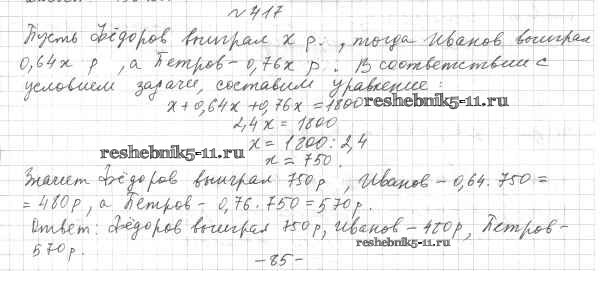 №417
Пусть Фёдоров выиграл x р., тогда Иванов выиграл
0,64x р, а Петров - 0,76x р. В соответствии с
условием задачи, составим уравнение:
x + 0,64x + 0,76x = 1800
reshebnik5-11.ru
2,4x = 1800
x = 1800 : 2,4
reshebnik5-11.ru
x = 750.
Значит Фёдоров выиграл 750р, Иванов - 0,64 · 750 =
= 480р, а Петров - 0,76 · 750 = 570р.
Ответ: Фёдоров выиграл 750р, Иванов - 480р, Петров -
reshebnik5-11.ru
570р.
- 85 -